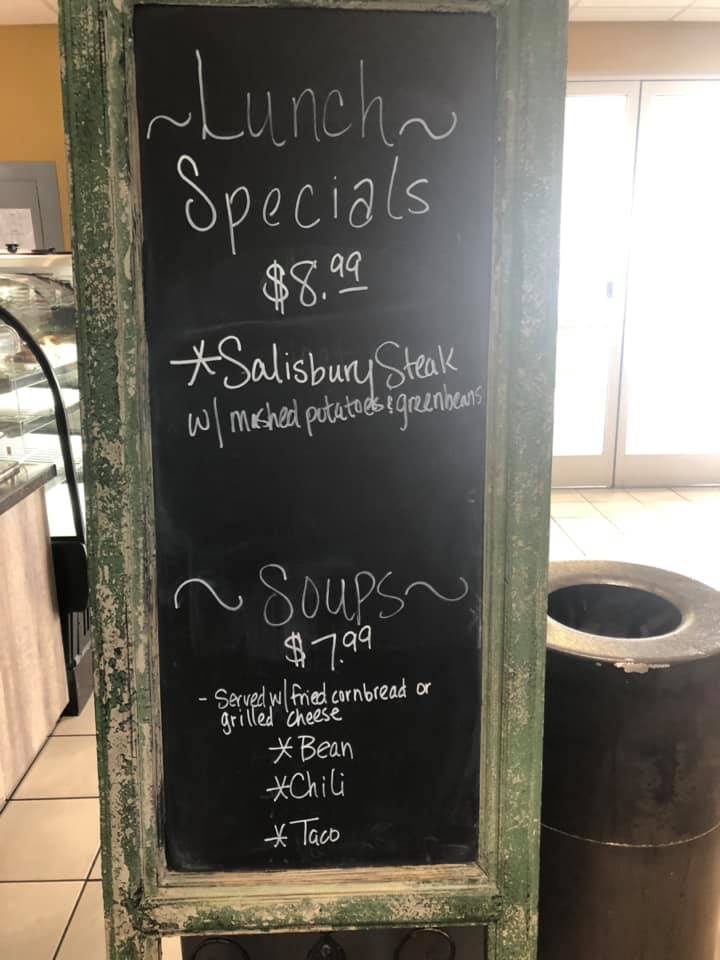 ~Lunch~
Specials
$8.99
*Salisbury Steak
w/ mashed potatoes & greenbeans
~Soups~
$7.99
- Served w/ fried cornbread or
grilled cheese
*Bean
*Chili
*Taco